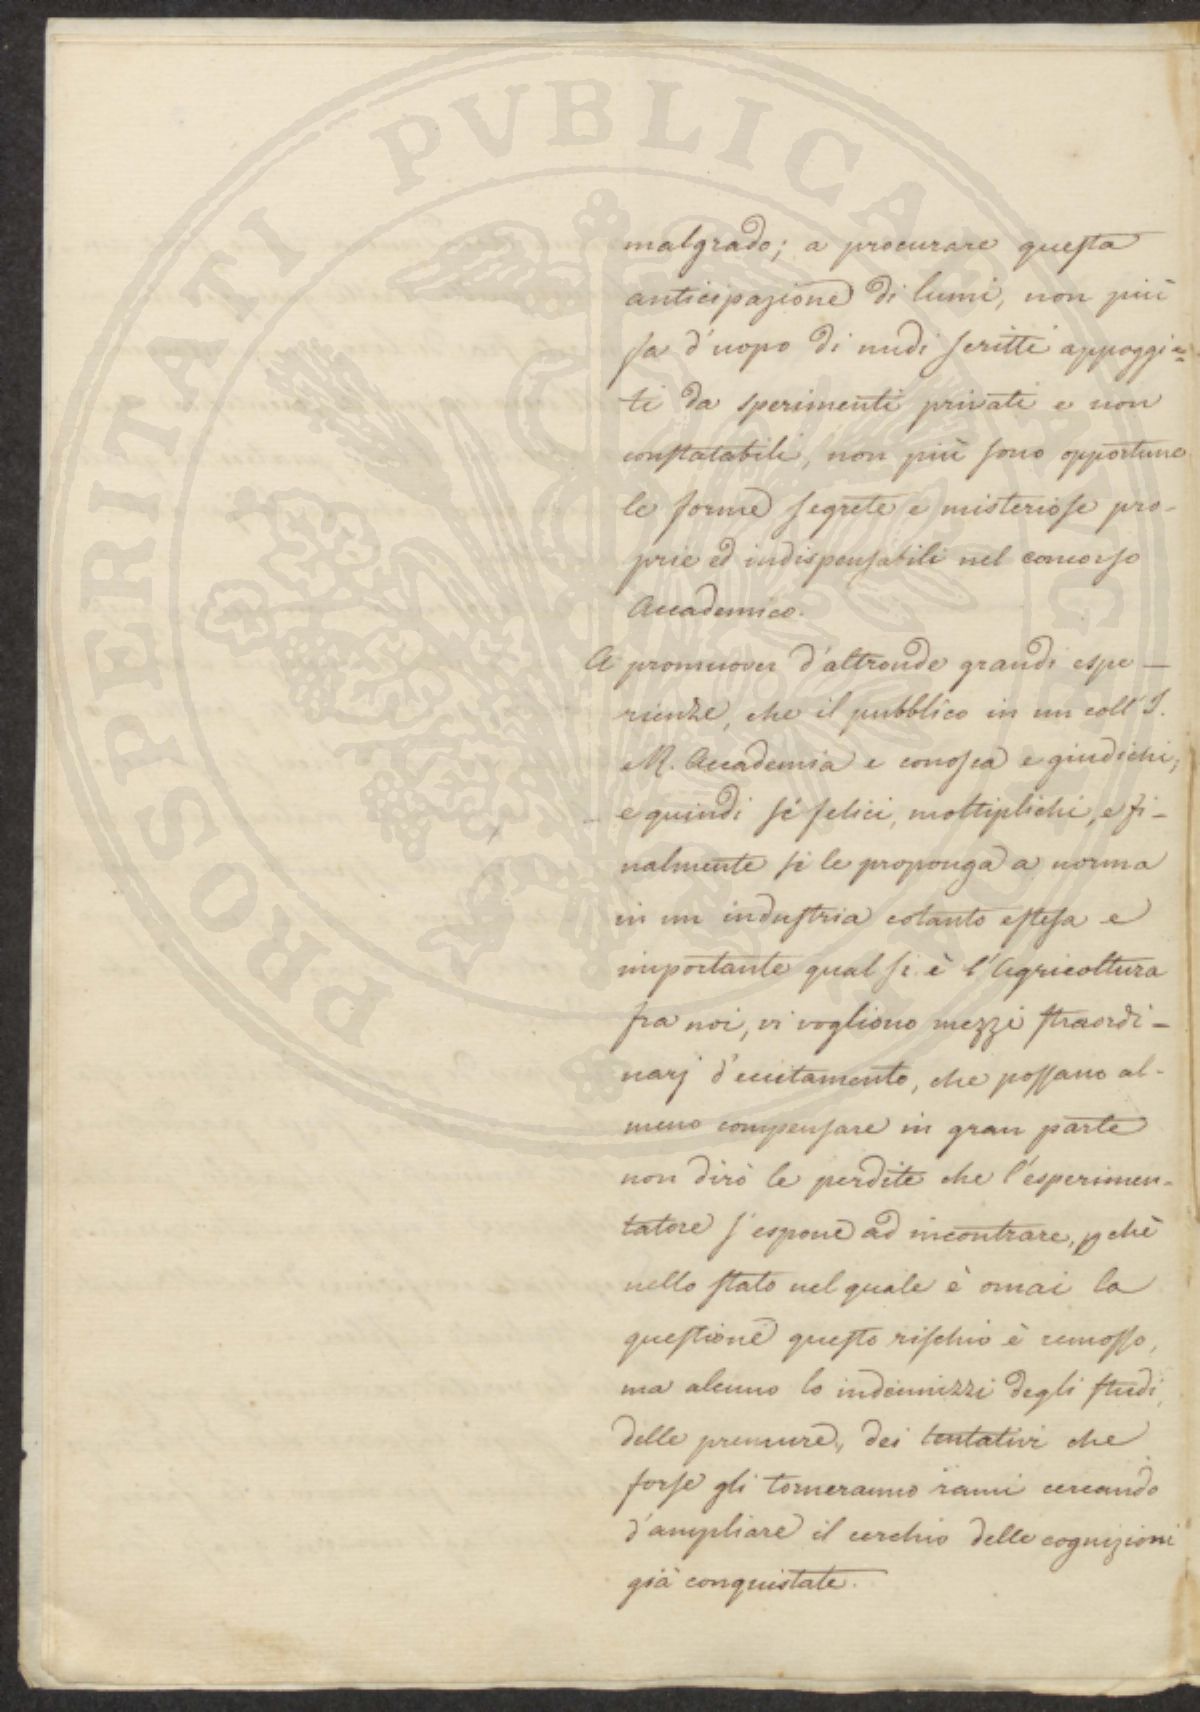 PROSPERITATI PVBLICAE AVGENDAE
malgrado; a procurare questa
anticipazione di lumi, non più
fa d'uopo di nudi scritti appoggia=
ti da sperimenti privati e non
constatabili, non più sono opportune
le forme segrete e misteriose pro-
prie ed indispensabili nel concorso
Accademico.
A promuover d'altronde grandi espe-
rienze, che il pubblico in un coll' I.
R. Accademia e conosca e giudichi,
e quindi se felici, moltiplichi, e fi-
nalmente si le proponga a norma
in un industria cotanto estesa e
importante qual si è l'Agricoltura
fra noi, vi vogliono mezzi straordi-
narj d'eccitamento, che possano al-
meno compensare in gran parte
non dirò le perdite che l'esperimen-
tatore s'espone ad incontrare, pchè
nello stato nel quale è omai la
questione questo rischio è remosso,
ma alcuno lo indennizzi degli studi,
delle premure, dei tentativi che
forse gli torneranno vani cercando
d'ampliare il cerchio delle cognizioni
già conquistate.